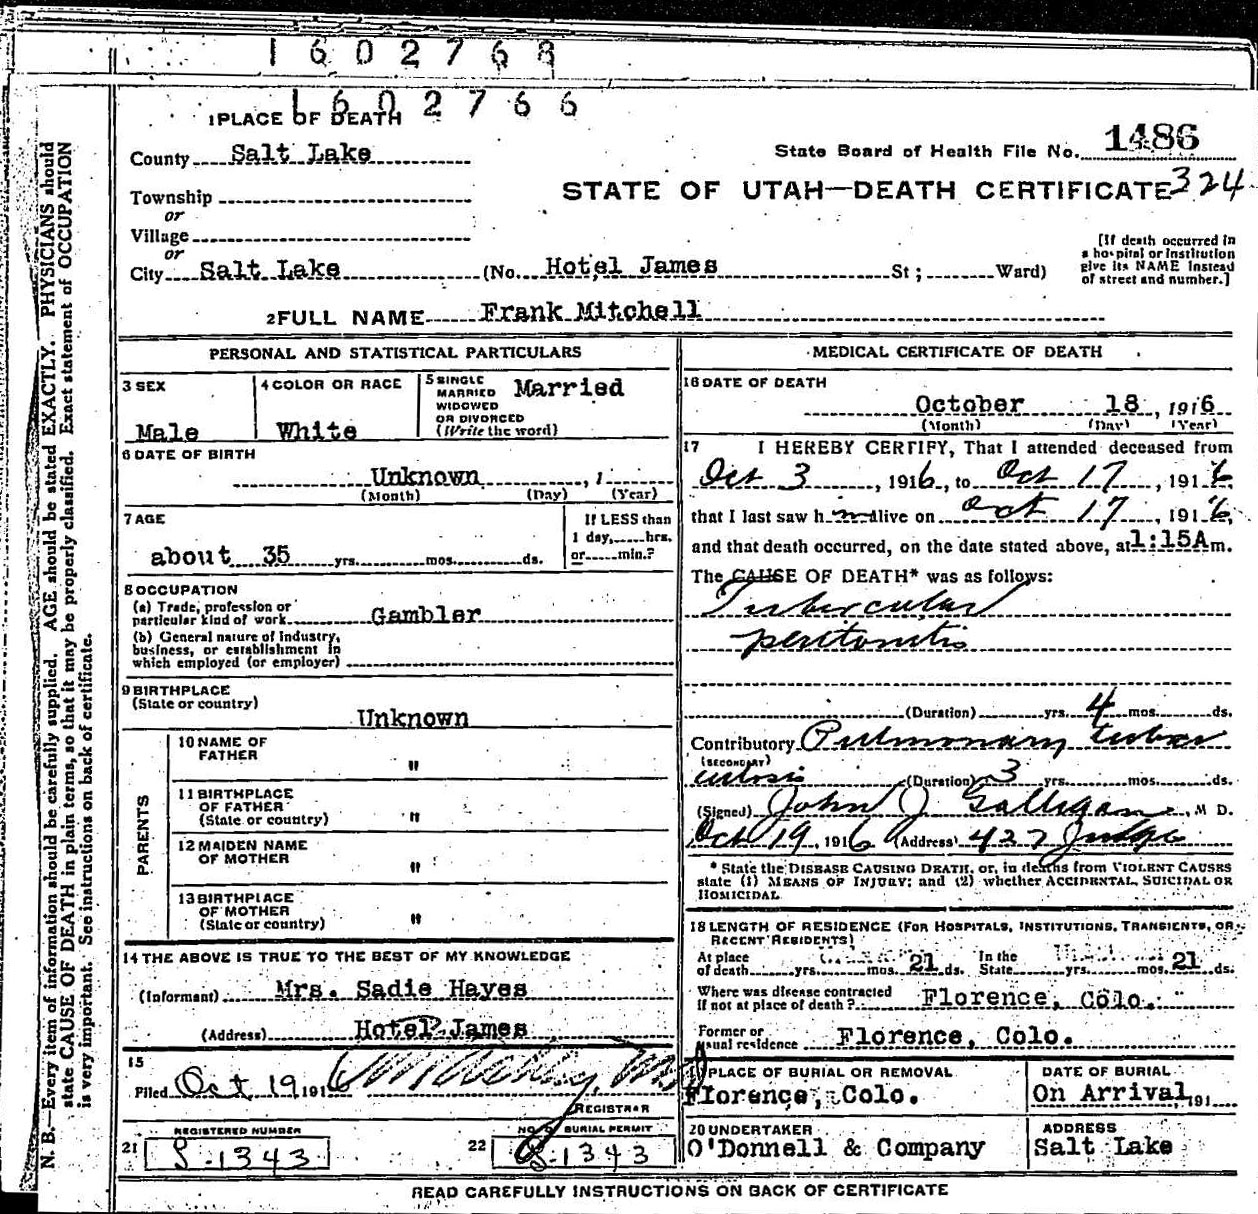 1602768
1602766
1 PLACE OF DEATH
County Salt Lake
State Board of Health File No. 1486
Township
STATE OF UTAH—DEATH CERTIFICATE 324
or
Village
or
City Salt Lake (No. Hotel James St ; Ward)
[If death occurred in
a hospital or institution
give its NAME instead
of street and number.]
2 FULL NAME Frank Mitchell
PERSONAL AND STATISTICAL PARTICULARS
3 SEX
Male
4 COLOR OR RACE
White
5 SINGLE
MARRIED
WIDOWED
OR DIVORCED
(Write the word)
Married
6 DATE OF BIRTH
Unknown , 1
(Month) (Day) (Year)
7 AGE
about 35 yrs. mos. ds.
If LESS than
1 day, hrs.
or min.?
8 OCCUPATION
(a) Trade, profession or
particular kind of work Gambler
(b) General nature of industry,
business, or establishment in
which employed (or employer)
9 BIRTHPLACE
(State or country)
Unknown
PARENTS
10 NAME OF
FATHER "
11 BIRTHPLACE
OF FATHER
(State or country) "
12 MAIDEN NAME
OF MOTHER "
13 BIRTHPLACE
OF MOTHER
(State or country) "
14 THE ABOVE IS TRUE TO THE BEST OF MY KNOWLEDGE
(Informant) Mrs. Sadie Hayes
(Address) Hotel James
15
Filed Oct 19 1916
REGISTRAR
REGISTERED NUMBER
21 S-1343
NO. OF BURIAL PERMIT
22 S-1343
MEDICAL CERTIFICATE OF DEATH
16 DATE OF DEATH
October 18, 1916
(Month) (Day) (Year)
17 I HEREBY CERTIFY, That I attended deceased from
Oct 3, 1916, to Oct 17, 1916,
that I last saw h im alive on Oct 17, 1916,
and that death occurred, on the date stated above, at 1:15A m.
The CAUSE OF DEATH* was as follows:
Tubercular
peritonitis
(Duration) yrs. 4 mos. ds.
Contributory Pulmonary tuber
(SECONDARY)
culosis (Duration) 3 yrs. mos. ds.
(Signed) John J Galligan, M D.
Oct 19, 1916 (Address) 427 Judge
* State the DISEASE CAUSING DEATH, or, in deaths from VIOLENT CAUSES
state (1) MEANS OF INJURY; and (2) whether ACCIDENTAL, SUICIDAL OR
HOMICIDAL
18 LENGTH OF RESIDENCE (FOR HOSPITALS, INSTITUTIONS, TRANSIENTS, OR
RECENT RESIDENTS)
At place In the
of death yrs. mos. 21 ds. State yrs. mos. 21 ds.
Where was disease contracted
if not at place of death? Florence, Colo.
Former or
usual residence Florence, Colo.
PLACE OF BURIAL OR REMOVAL
Florence, Colo.
DATE OF BURIAL
On Arrival, 191
20 UNDERTAKER
O'Donnell & Company
ADDRESS
Salt Lake
READ CAREFULLY INSTRUCTIONS ON BACK OF CERTIFICATE
N. B.—Every item of information should be carefully supplied. AGE should be stated EXACTLY. PHYSICIANS should
state CAUSE OF DEATH in plain terms, so that it may be properly classified. Exact statement of OCCUPATION
is very important. See instructions on back of certificate.